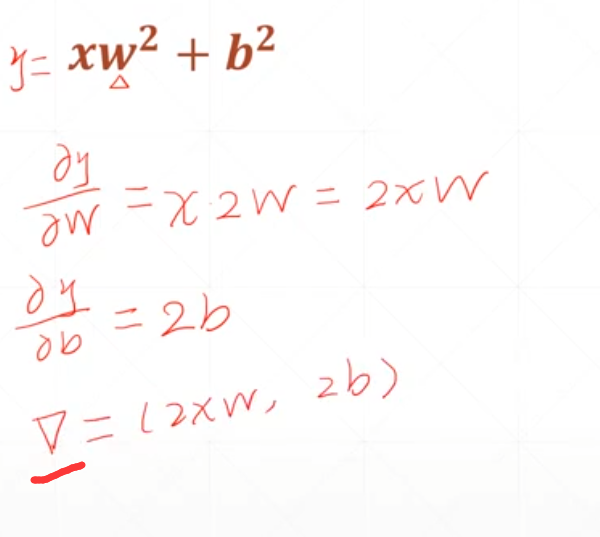 y= xw² + b²
∂y/∂w = x·2w = 2xw
∂y/∂b = 2b
∇ = (2xw, 2b)